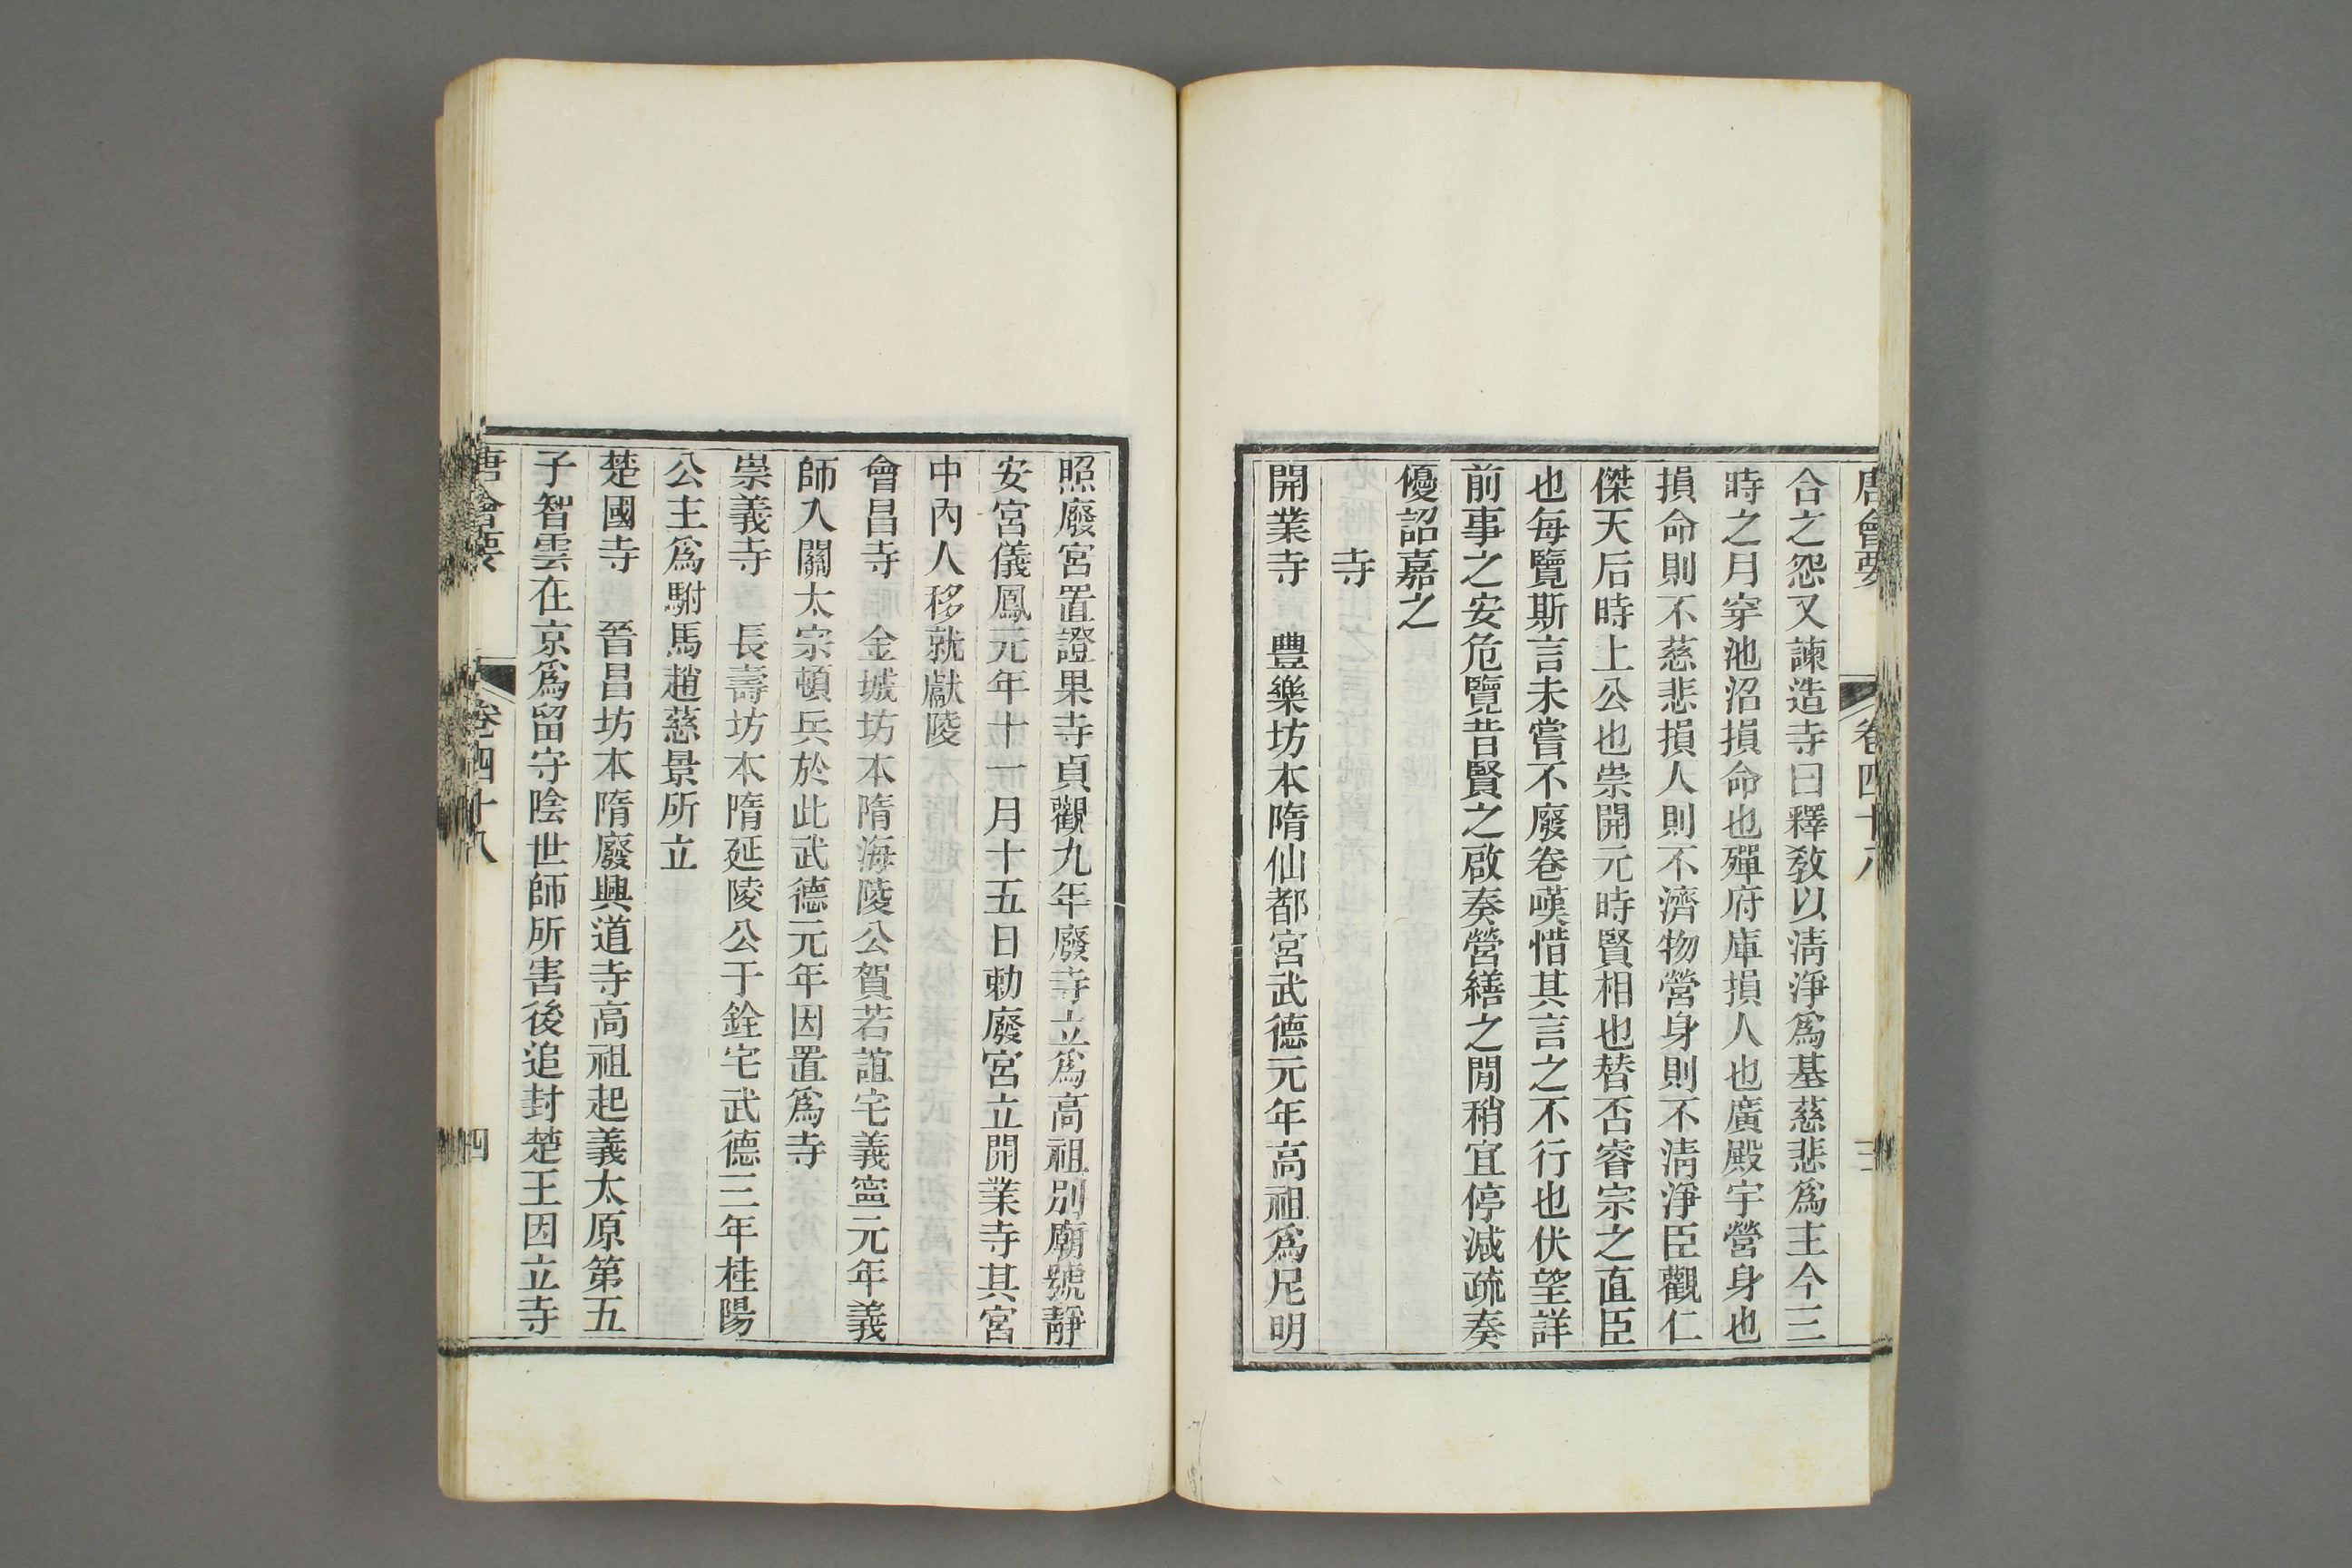 唐會要 卷四十八 三
合之怨又諫造寺曰釋敎以淸淨爲基慈悲爲主今三
時之月穿池沼損命也殫府庫損人也廣殿宇營身也
損命則不慈悲損人則不濟物營身則不淸淨臣觀仁
傑天后時上公也崇開元時賢相也替否睿宗之直臣
也每覽斯言未嘗不廢卷嘆惜其言之不行也伏望詳
前事之安危覽昔賢之啟奏營繕之閒稍宜停減疏奏
優詔嘉之
寺
開業寺 豐樂坊本隋仙都宮武德元年高祖爲尼明
照廢宮置證果寺貞觀九年廢寺立爲高祖別廟號靜
安宮儀鳳元年十一月十五日勅廢宮立開業寺其宮
中內人移就獻陵
會昌寺 金城坊本隋海陵公賀若誼宅義寧元年義
師入關太宗頓兵於此武德元年因置爲寺
崇義寺 長壽坊本隋延陵公于銓宅武德三年桂陽
公主爲駙馬趙慈景所立
楚國寺 晉昌坊本隋廢興道寺高祖起義太原第五
子智雲在京爲留守陰世師所害後追封楚王因立寺
唐會要 卷四十八 四